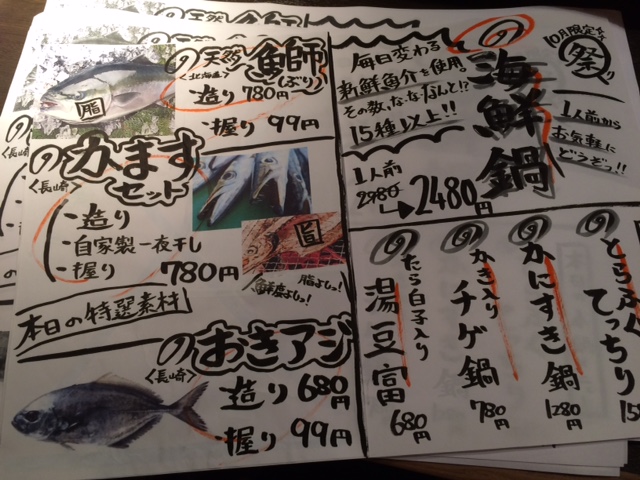 の天然魚師
〈北海道〉(ぶり)
造り780円〜
・握り99円
脂
のかます
〈長崎〉セット
・造り
・自家製一夜干し
・握り 780円
旨
脂よしっ!
鮮度よしっ!
本日の特選素材
のおきアジ
〈長崎〉
造り680円
・握り99円
10月限定
祭り
の海鮮鍋
毎日変わる
新鮮魚介を使用
その数、ななんと!?
15種以上!!
1人前から
お気軽に
どうぞっ!!
1人前
2980
→2480円
のとらふぐ
てっちり
の
かにすき鍋
1280円
の
かき入り
チゲ鍋
780円
の
たら白子入り
湯豆富
680円